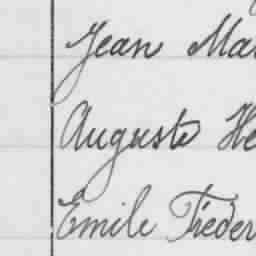 Jean Ma
Auguste He
Emile Fréder